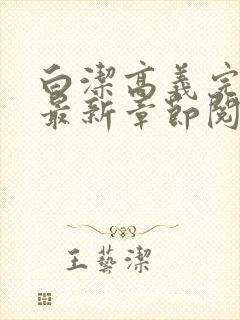 白潔高義完
最新章節閱
王藝潔